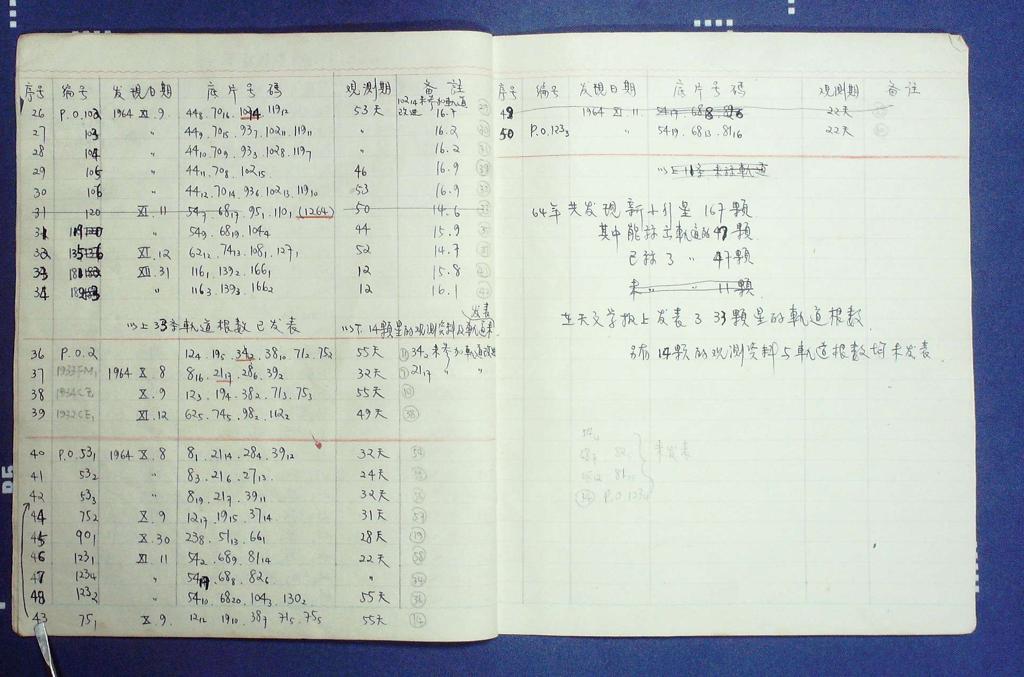 序号 编号 发现日期 底片号码 观测期 备注
26 P.O.102 1964 XI.9. 44₈.70₁₆.102₁₄.119₁₂ 53天 16.7
10214未参加轨道改进
27 103 〃 44₉.70₁₅.93₇.102₁₁.119₁₁ 〃 16.2
28 104 〃 44₁₀.70₉.93₃.102₈.119₇ 〃 16.2
29 105 〃 44₁₁.70₈.102₁₅. 46 16.9
30 106 〃 44₁₂.70₁₄.93₆.102₁₃.119₁₀ 53 16.9
31 120 XI.11 54₇.68₁₇.95₁.110₁(126₄) 50 14.6
31 〃 54₉.68₁₉.104₄ 44 15.9
32 XI.12 62₁₂.74₁₃.108₁.127₁ 52 14.7
33 XII.31 116₁.139₂.166₁ 12 15.8
34 〃 116₃.139₃.166₂ 12 16.1
以上33李軌道根数已发表
以下14颗星的观测资料及軌道未发表
36 P.O.2 124.19₅.34₂.38₁₀.71₂.75₂ 55天 34₂未参加軌道改进
37 1933FM₁ 1964 X.8 8₁₆.21₁₇.28₆.39₂ 32天 21₁₇ 〃 〃
38 1934CE X.9 12₃.19₄.38₂.71₃.75₃ 55天
39 1932CE₁ XI.12 62₅.74₅.98₂.112₂ 49天
40 P.O.53₁ 1964 X.8 8₁.21₄.28₄.39₁₂ 32天
41 53₂ 〃 8₃.21₆.27₁₃. 24天
42 53₃ 〃 8₁₉.21₇.39₁₁ 32天
44 75₂ X.9 12₁₇.19₁₅.37₁₄ 31天
45 90₁ X.30 23₈.51₃.66₁ 28天
46 123₁ XI.11 54₂.68₉.81₁₄ 22天
47 123₄ 〃 54₁₇.68₈.82₆ 〃
48 123₂ 54₁₀.68₂₀.104₃.130₂ 55天
43 75₁ X.9. 12₁₂ 19₁₀.38₇ 71₅.75₅ 55天
序号 编号 发现日期 底片号码 观测期 备注
49 1964 XI.11. 22天
50 P.O.123₃ 54₁₉.68₁₃.81₁₆ 22天
64年共发现新小行星167颗
其中能算出軌道的47颗
已算了 〃 47颗
未 〃 〃 11颗
在天文学报上发表了33颗星的軌道根数.
另有14颗的观测资料与軌道根数均未发表.
未发表